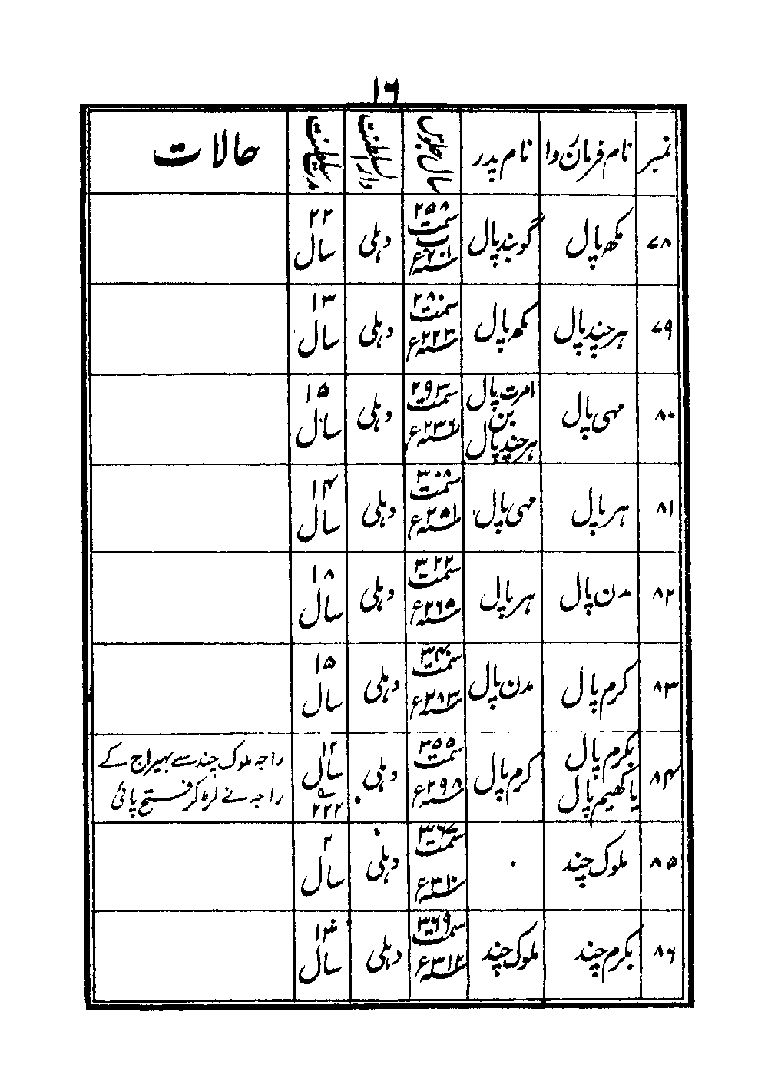 ۱۶
نمبر | نام فرمان روا | نام پدر | سال جلوس | دارالسلطنت | مدت سلطنت | حالات
۷۸ | مکھ پال | گوبند پال | ۲۵۸ سمت ۲۰۱ء | دہلی | ۲۲ سال |
۷۹ | ہرچند پال | مکھ پال | ۲۸۰ سمت ۲۲۳ء | دہلی | ۱۳ سال |
۸۰ | مہی پال | امرت پال بن ہرچند پال | ۲۹۳ سمت ۲۳۶ء | دہلی | ۱۵ سال |
۸۱ | ہرپال | مہی پال | ۳۰۸ سمت ۲۵۱ء | دہلی | ۱۴ سال |
۸۲ | مدن پال | ہرپال | ۳۲۲ سمت ۲۶۵ء | دہلی | ۱۸ سال |
۸۳ | کرم پال | مدن پال | ۳۴۰ سمت ۲۸۳ء | دہلی | ۱۵ سال |
۸۴ | بکرم پال یا کھیم پال | کرم پال | ۳۵۵ سمت ۲۹۸ء | دہلی | ۱۲ سال ۲۲۲ | راجہ ملوک چند سے بہیراج کے راجہ نے لڑکر فتح پائی
۸۵ | ملوک چند | ۰ | ۳۶۷ سمت ۳۱۰ء | دہلی | ۲ سال |
۸۶ | بکرم چند | ملوک چند | ۳۶۹ سمت ۳۱۲ء | دہلی | ۱۳ سال |